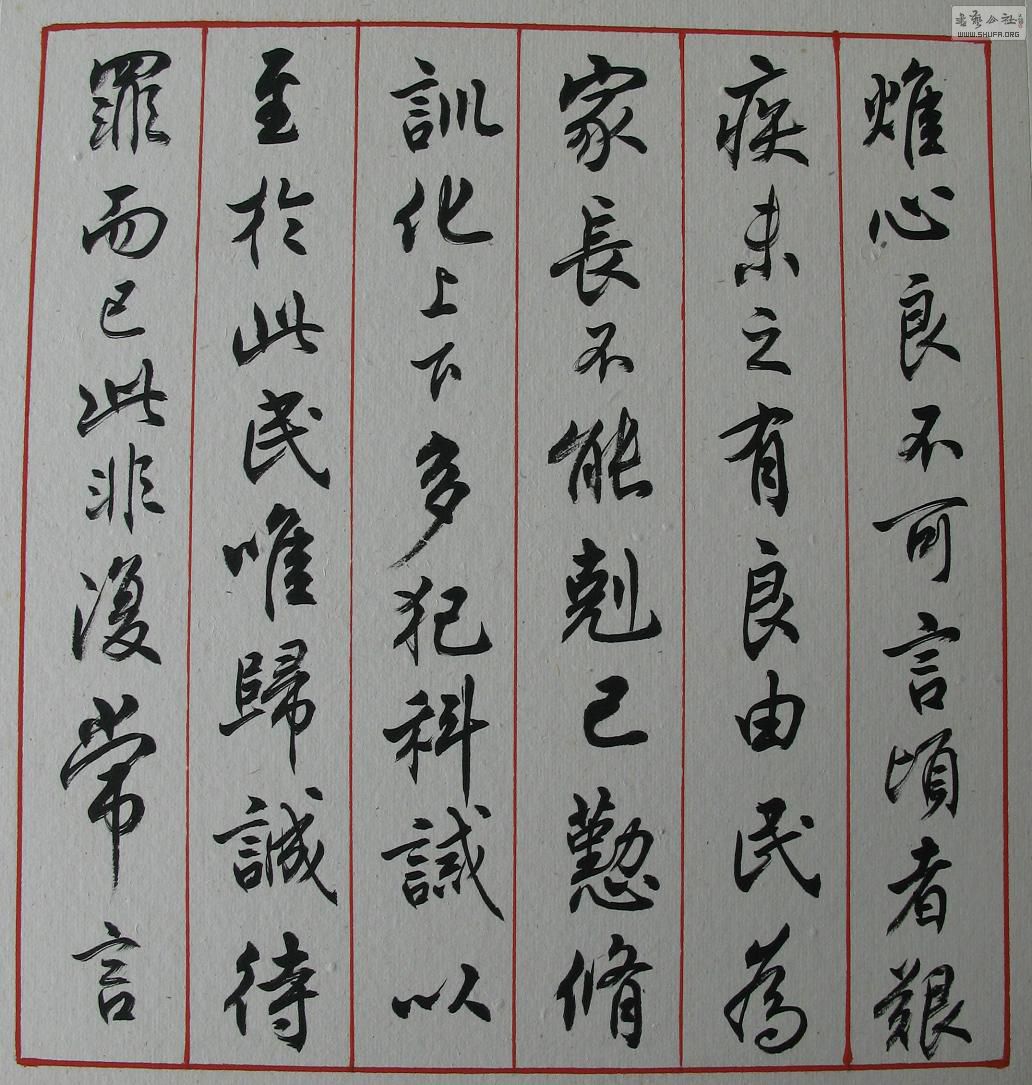 燋心良不可言頃者艱
疾未之有良由民為
家長不能剋己懃脩
訓化上下多犯科誡以
至於此民唯歸誠待
罪而已此非復常言
書藝公社
WWW.SHUFA.ORG